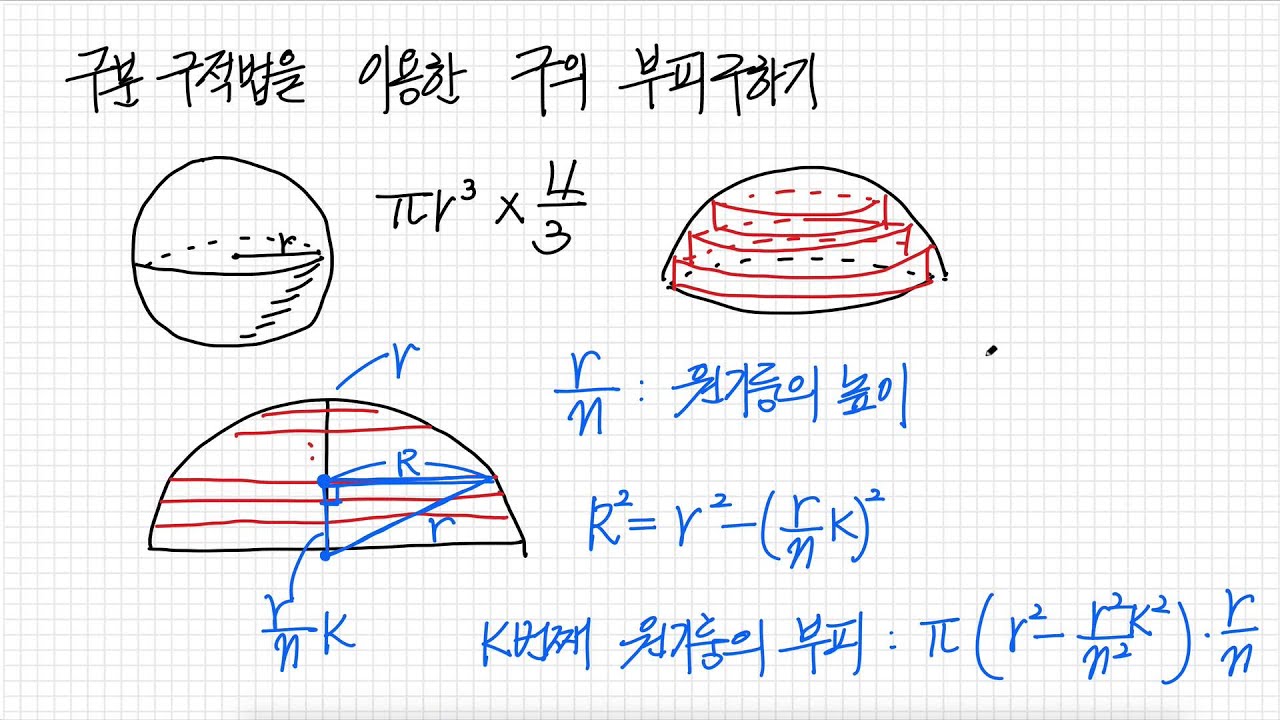 구분 구적법을 이용한 구의 부피구하기
r
πr³ × 4/3
r
r/n : 원기둥의 높이
R
r
R² = r² - (r/n K)²
r/n K
K번째 원기둥의 부피 : π(r² - r²K²/n²) · r/n